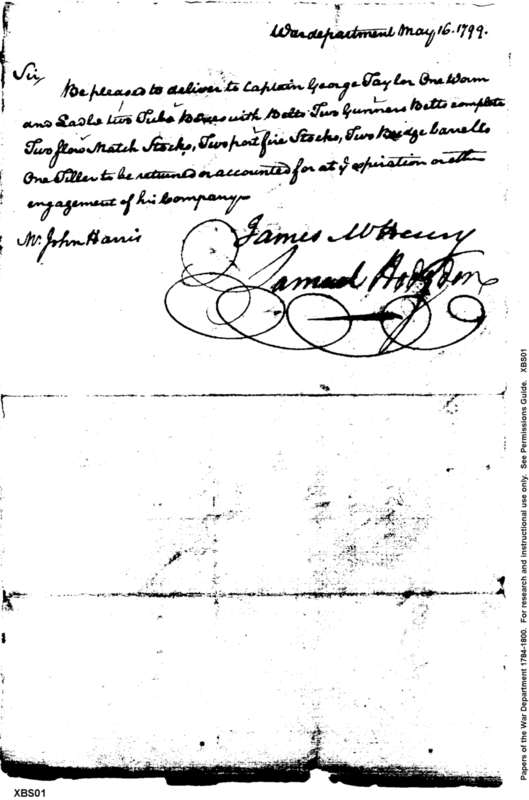 War department May 16. 1799.
Sir,
Be pleased to deliver to Captain George Taylor One Worm
and Ladle two Tube Boxes with Belts Two Gunners Belts complete
Two slow Match Stocks, Two port fire Stocks, Two Budge barrells
One Tiller to be returned or accounted for at ye expiration or other
engagement of his Company.
Mr. John Harris
James McHenry
Samuel Hodgdon
Papers of the War Department 1784-1800. For research and instructional use only. See Permissions Guide. XBS01
XBS01